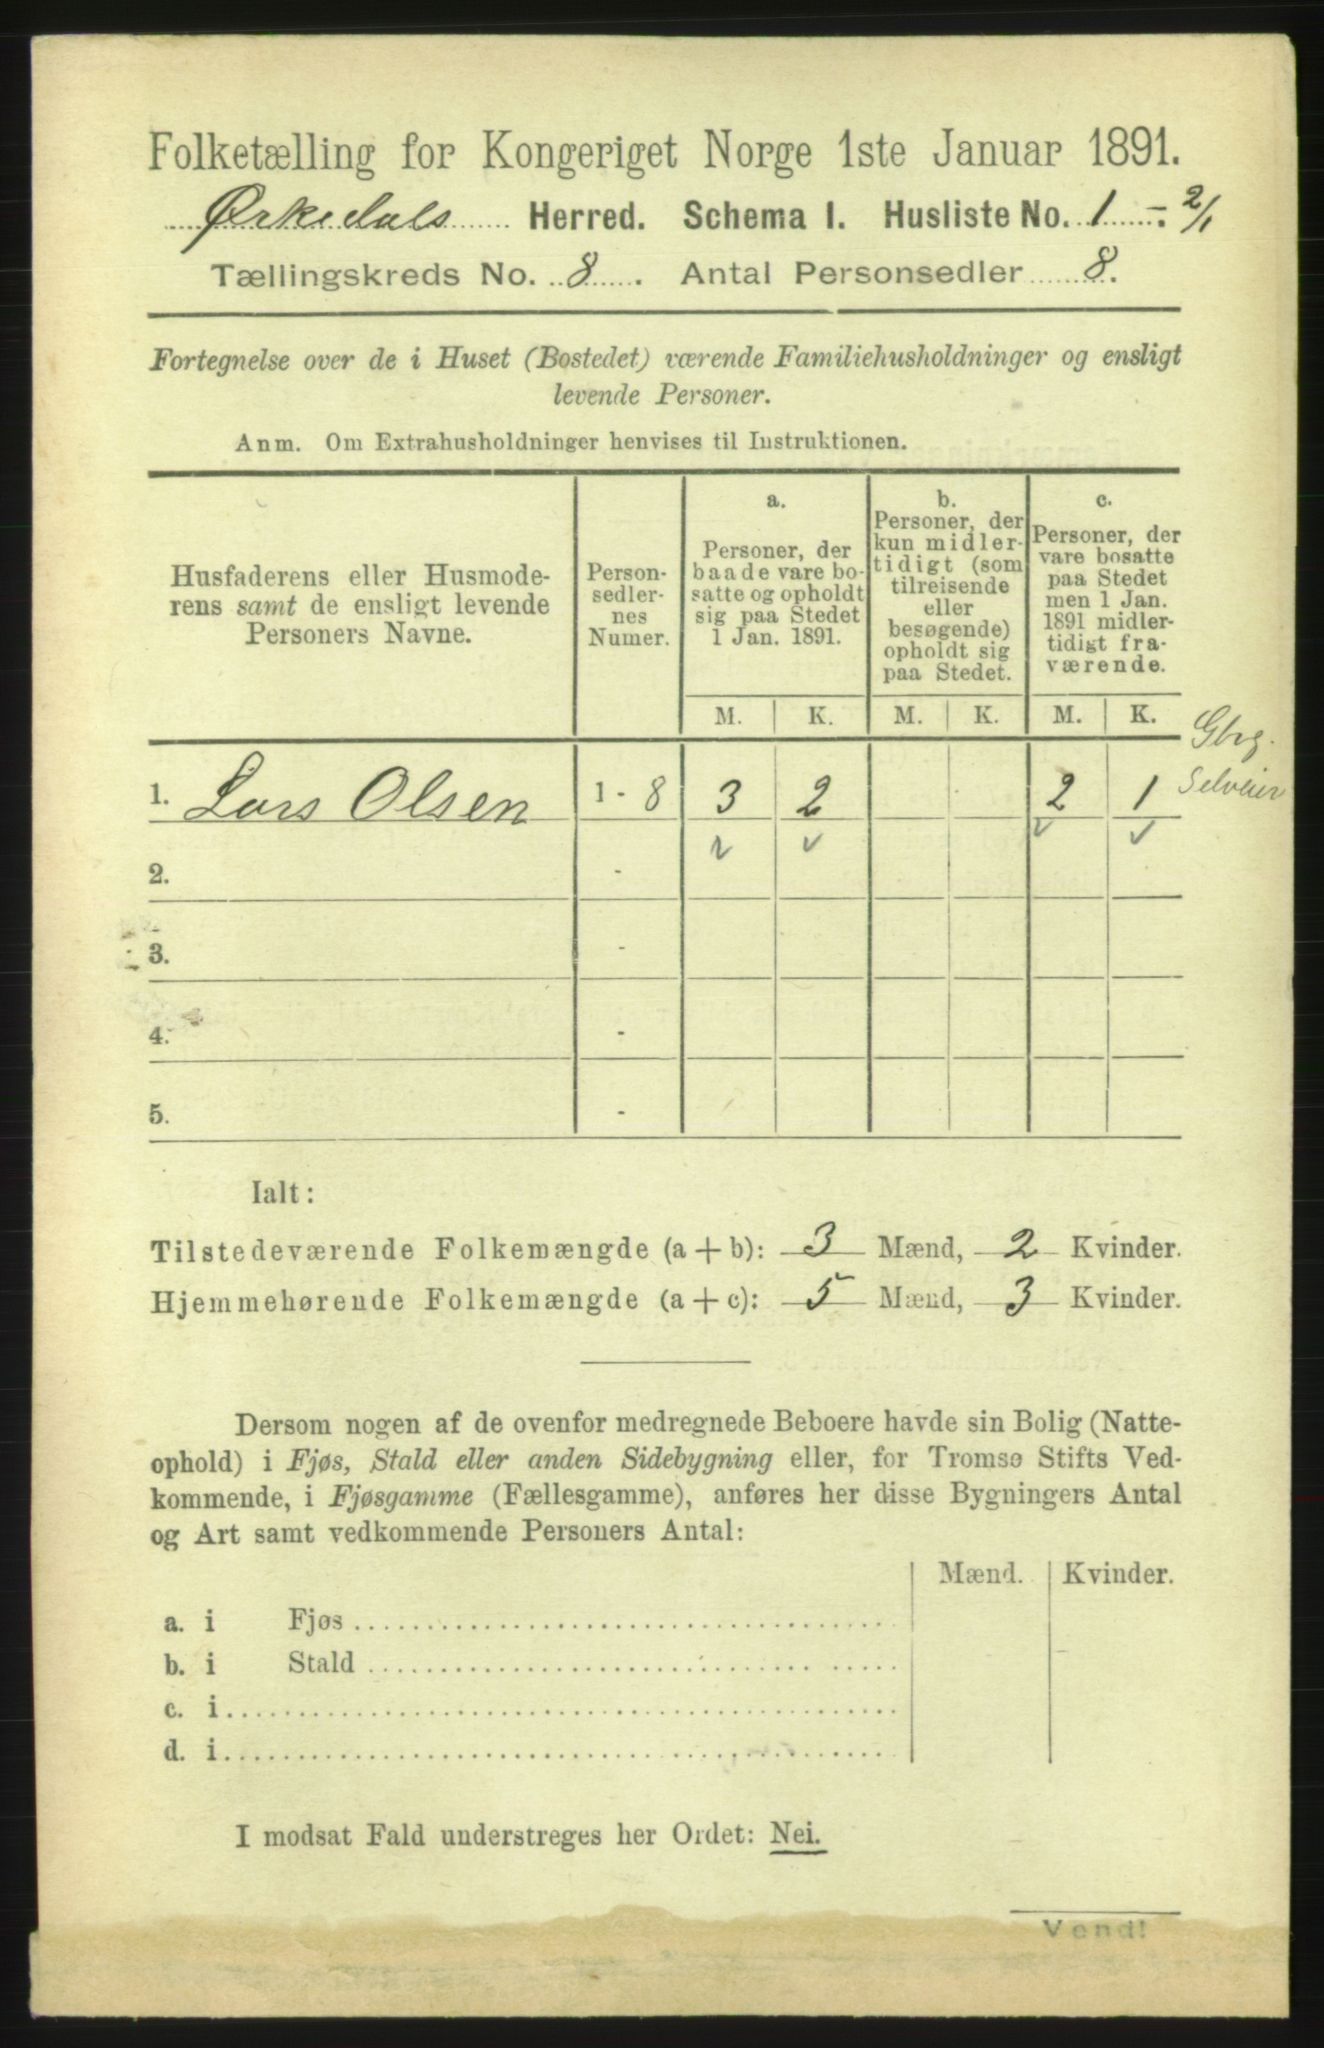 Folketælling for Kongeriget Norge 1ste Januar 1891.
Ørkedals Herred. Schema I. Husliste No. 1 - 2/1
Tællingskreds No. 8. Antal Personsedler 8.
Fortegnelse over de i Huset (Bostedet) værende Familiehusholdninger og ensligt
levende Personer.
Anm. Om Extrahusholdninger henvises til Instruktionen.
Husfaderens eller Husmode-
rens samt de ensligt levende
Personers Navne.
Person-
sedler-
nes
Numer.
a.
Personer, der
baade vare bo-
satte og opholdt
sig paa Stedet
1 Jan. 1891.
b.
Personer, der
kun midler-
tidigt (som
tilreisende
eller
besøgende)
opholdt sig
paa Stedet.
c.
Personer, der
vare bosatte
paa Stedet
men 1 Jan.
1891 midler-
tidigt fra-
værende.
M. K. M. K. M. K.
Gbrg.
Selveier
1. Lars Olsen 1 - 8 3 2 2 1
2. -
3. -
4. -
5. -
Ialt:
Tilstedeværende Folkemængde (a + b): 3 Mænd, 2 Kvinder.
Hjemmehørende Folkemængde (a + c): 5 Mænd, 3 Kvinder.
Dersom nogen af de ovenfor medregnede Beboere havde sin Bolig (Natte-
ophold) i Fjøs, Stald eller anden Sidebygning eller, for Tromsø Stifts Ved-
kommende, i Fjøsgamme (Fællesgamme), anføres her disse Bygningers Antal
og Art samt vedkommende Personers Antal:
Mænd. Kvinder.
a. i Fjøs
b. i Stald
c. i
d. i
I modsat Fald understreges her Ordet: Nei.
Vend!